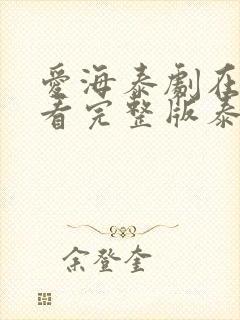 愛海泰劇在
看完整版泰
余登奎